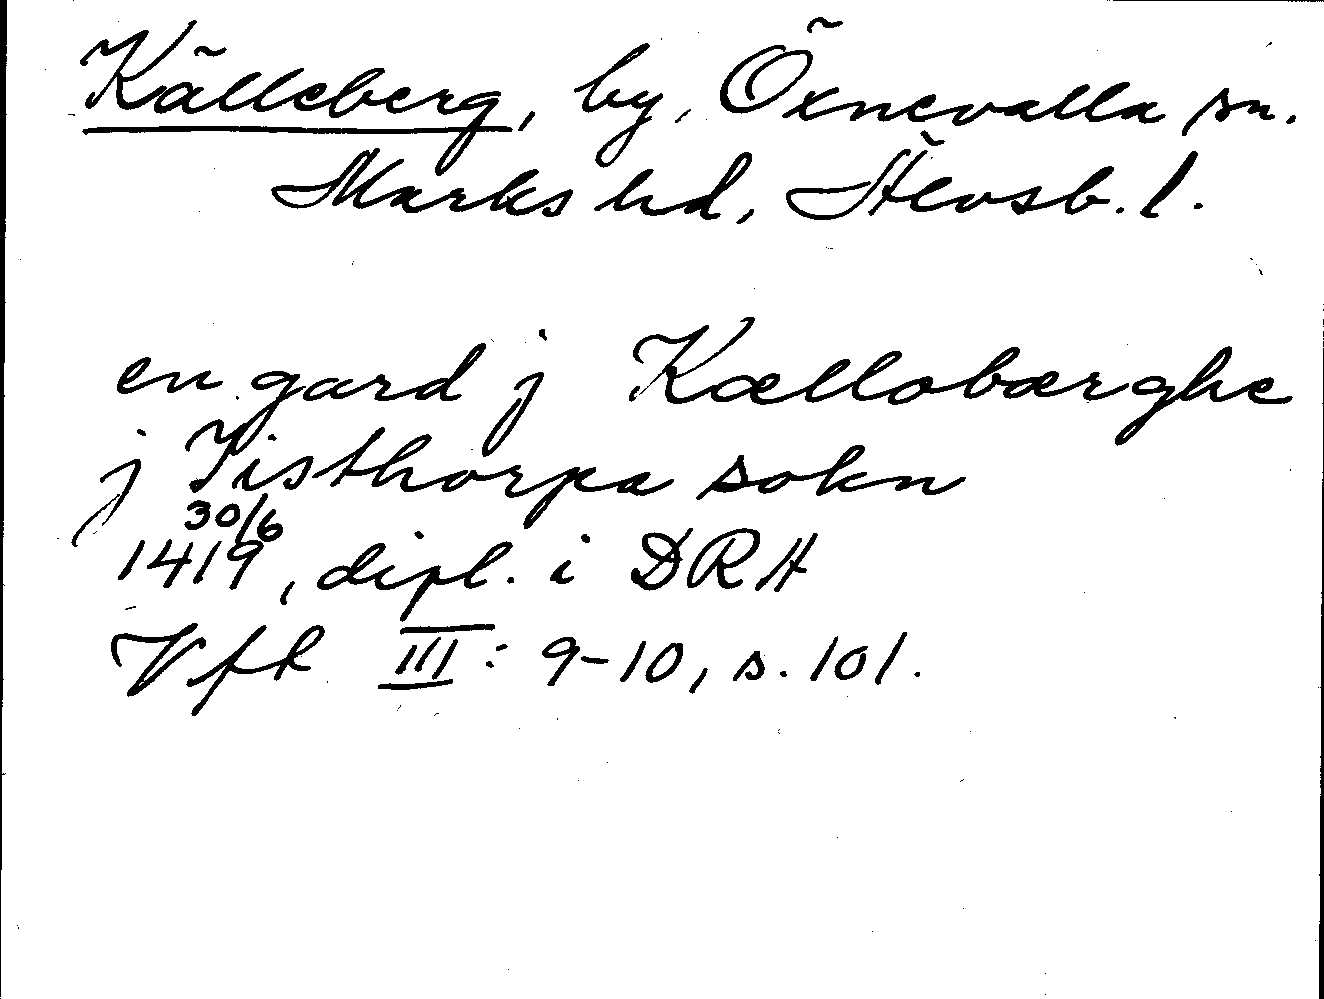 Källeberg, by, Öxnevalla sn.
Marks hd, Älvsb. l.
en gard j Kællobærghe
j Tisthorpa sokn
30/6
1419, dipl. i DRA
VfR III: 9-10, s. 101.